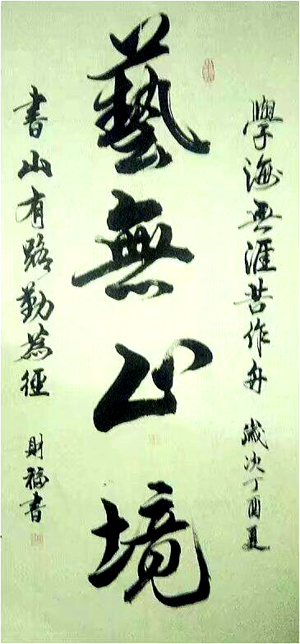 學海無涯苦作舟 歲次丁酉夏
藝無止境
書山有路勤為徑 財福書